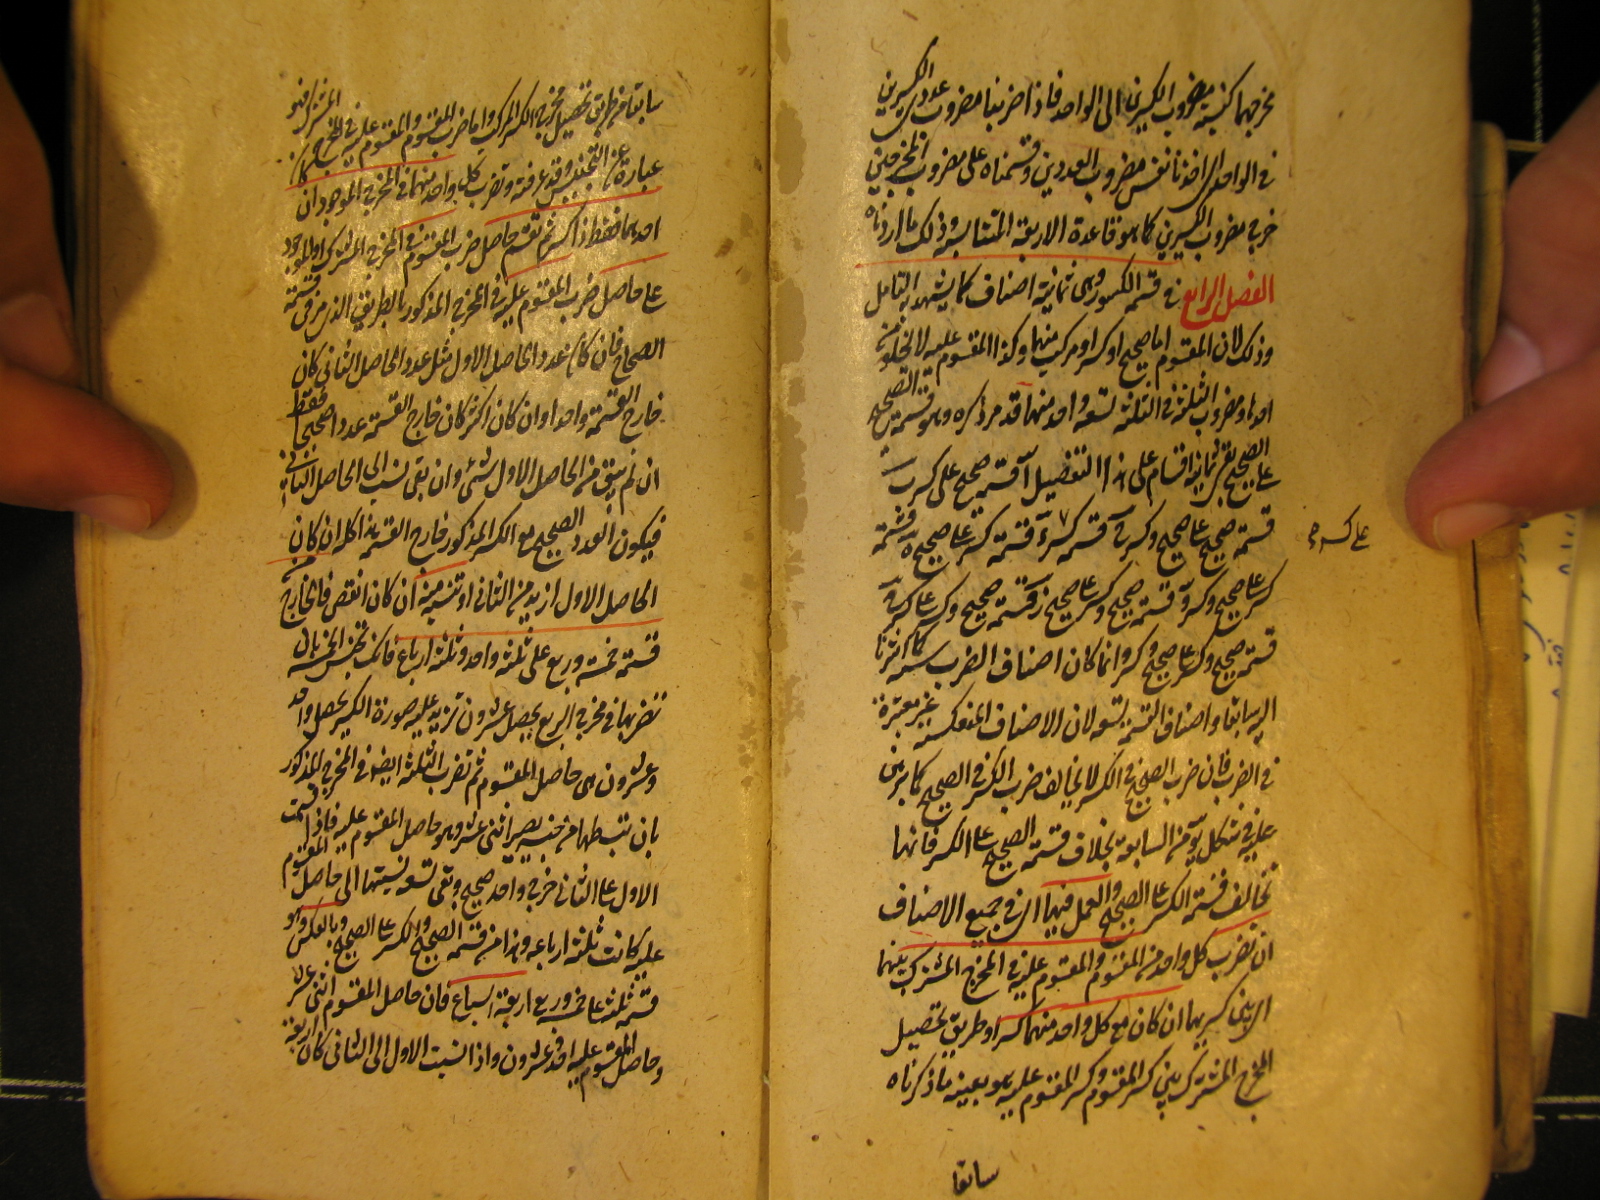 مخرجهما كنسبة مضروب الكسرين الى الواحد فاذا ضربنا مضروب عدد الكسرين
في الواحد اى اخذنا نفس مضروب العددين وقسمناه على مضروب المخرجين
خرج مضروب الكسرين كما هو قاعدة الاربعة المتناسبة وذلك ما اردناه
الفصل الرابع في قسمة الكسور وهى ثمانية اصناف كما يشهد به التامل
وذلك لان المقسوم اما صحيح او كسر او مركب منهما وكذا المقسوم عليه لا يخلو من
احدها ومضروب الثلثة في الثلثة تسعة واحد منها قد مر ذكره وهو قسمة الصحيح
على الصحيح بقى ثمانية اقسام على هذا التفصيل آ قسمة صحيح على كسر ب
قسمة صحيح على صحيح وكسر ج قسمة كسر على كسر د قسمة كسر على صحيح ه وقسمة
على كسر
كسر على صحيح وكسر و قسمة صحيح وكسر على صحيح ز قسمة صحيح وكسر على كسر ح
قسمة صحيح وكسر على صحيح وكسر وانما كان اصناف الضرب خمسة كما اشرنا
اليه سابقا واصناف القسمة تسعة لان الاصناف المنعكسة غير معتبرة
في الضرب فان ضرب الصحيح في الكسر لا يخالف ضرب الكسر في الصحيح كما برهن
عليه في شكل من السابعة بخلاف قسمة الصحيح على الكسر فانها
تخالف قسمة الكسر على الصحيح والعمل فيها اى في جميع الاصناف
ان تضرب كل واحد من المقسوم والمقسوم عليه في المخرج المشترك بينهما
اى بين كسريهما ان كان مع كل واحد منهما كسر او طريق تحصيل
المخرج المشترك بين كسر المقسوم وكسر المقسوم عليه هو بعينه ما ذكرناه
سابقا
سابقا من طريق تحصيل مخرج الكسر المركب واما ضرب المقسوم والمقسوم عليه في المخرج المشترك فهو
عبارة عن التجنيس وقد عرفته وتضرب كل واحد منهما في المخرج الموجود ان كان
احدهما فقط ذا كسر ثم تقسم حاصل ضرب المقسوم في المخرج المشترك او الموجود
على حاصل ضرب المقسوم عليه في المخرج المذكور بالطريق الذى مر في قسمة
الصحاح فان كان عدد الحاصل الاول مثل عدد الحاصل الثانى كان
خارج القسمة واحدا وان كان اكثر كان خارج القسمة عددا صحيحا فقط
ان لم يبق من الحاصل الاول شئ وان بقى نسب الى الحاصل الثانى
فيكون العدد الصحيح مع الكسر المذكور خارج القسمة هذا كله ان كان
الحاصل الاول ازيد من الثانى او تنسبه منه ان كان انقص فالخارج
قسمة خمسة وربع على ثلثة واحد وثلثة ارباع فانك تجنس الخمسة بان
تضربها في مخرج الربع يحصل عشرون تزيد عليه صورة الكسر يحصل واحد
وعشرون هى حاصل المقسوم ثم تضرب الثلثة ايضا في المخرج المذكور
بان تبسطها من جنسه يصير اثنى عشر وهو حاصل المقسوم عليه فاذا قسمت
الاول على الثانى خرج واحد صحيح وبقى تسعة نسبتها الى حاصل المقسوم
عليه كانت ثلثة ارباعه وهذا من قسمة الصحيح والكسر على الصحيح وبالعكس وهو
قسمة ثلثة على خمسة وربع اربعة اسباع فان حاصل المقسوم اثنى عشر
وحاصل المقسوم عليه احد وعشرون واذا نسبت الاول الى الثانى كان اربعة